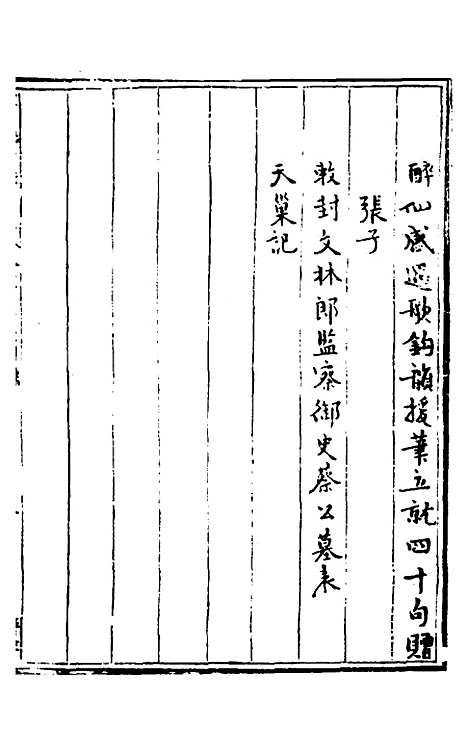 醉仙感遇歌鈎韻援筆立就四十句贈
張子
敕封文林郎監察御史蔡公墓表
天巢記